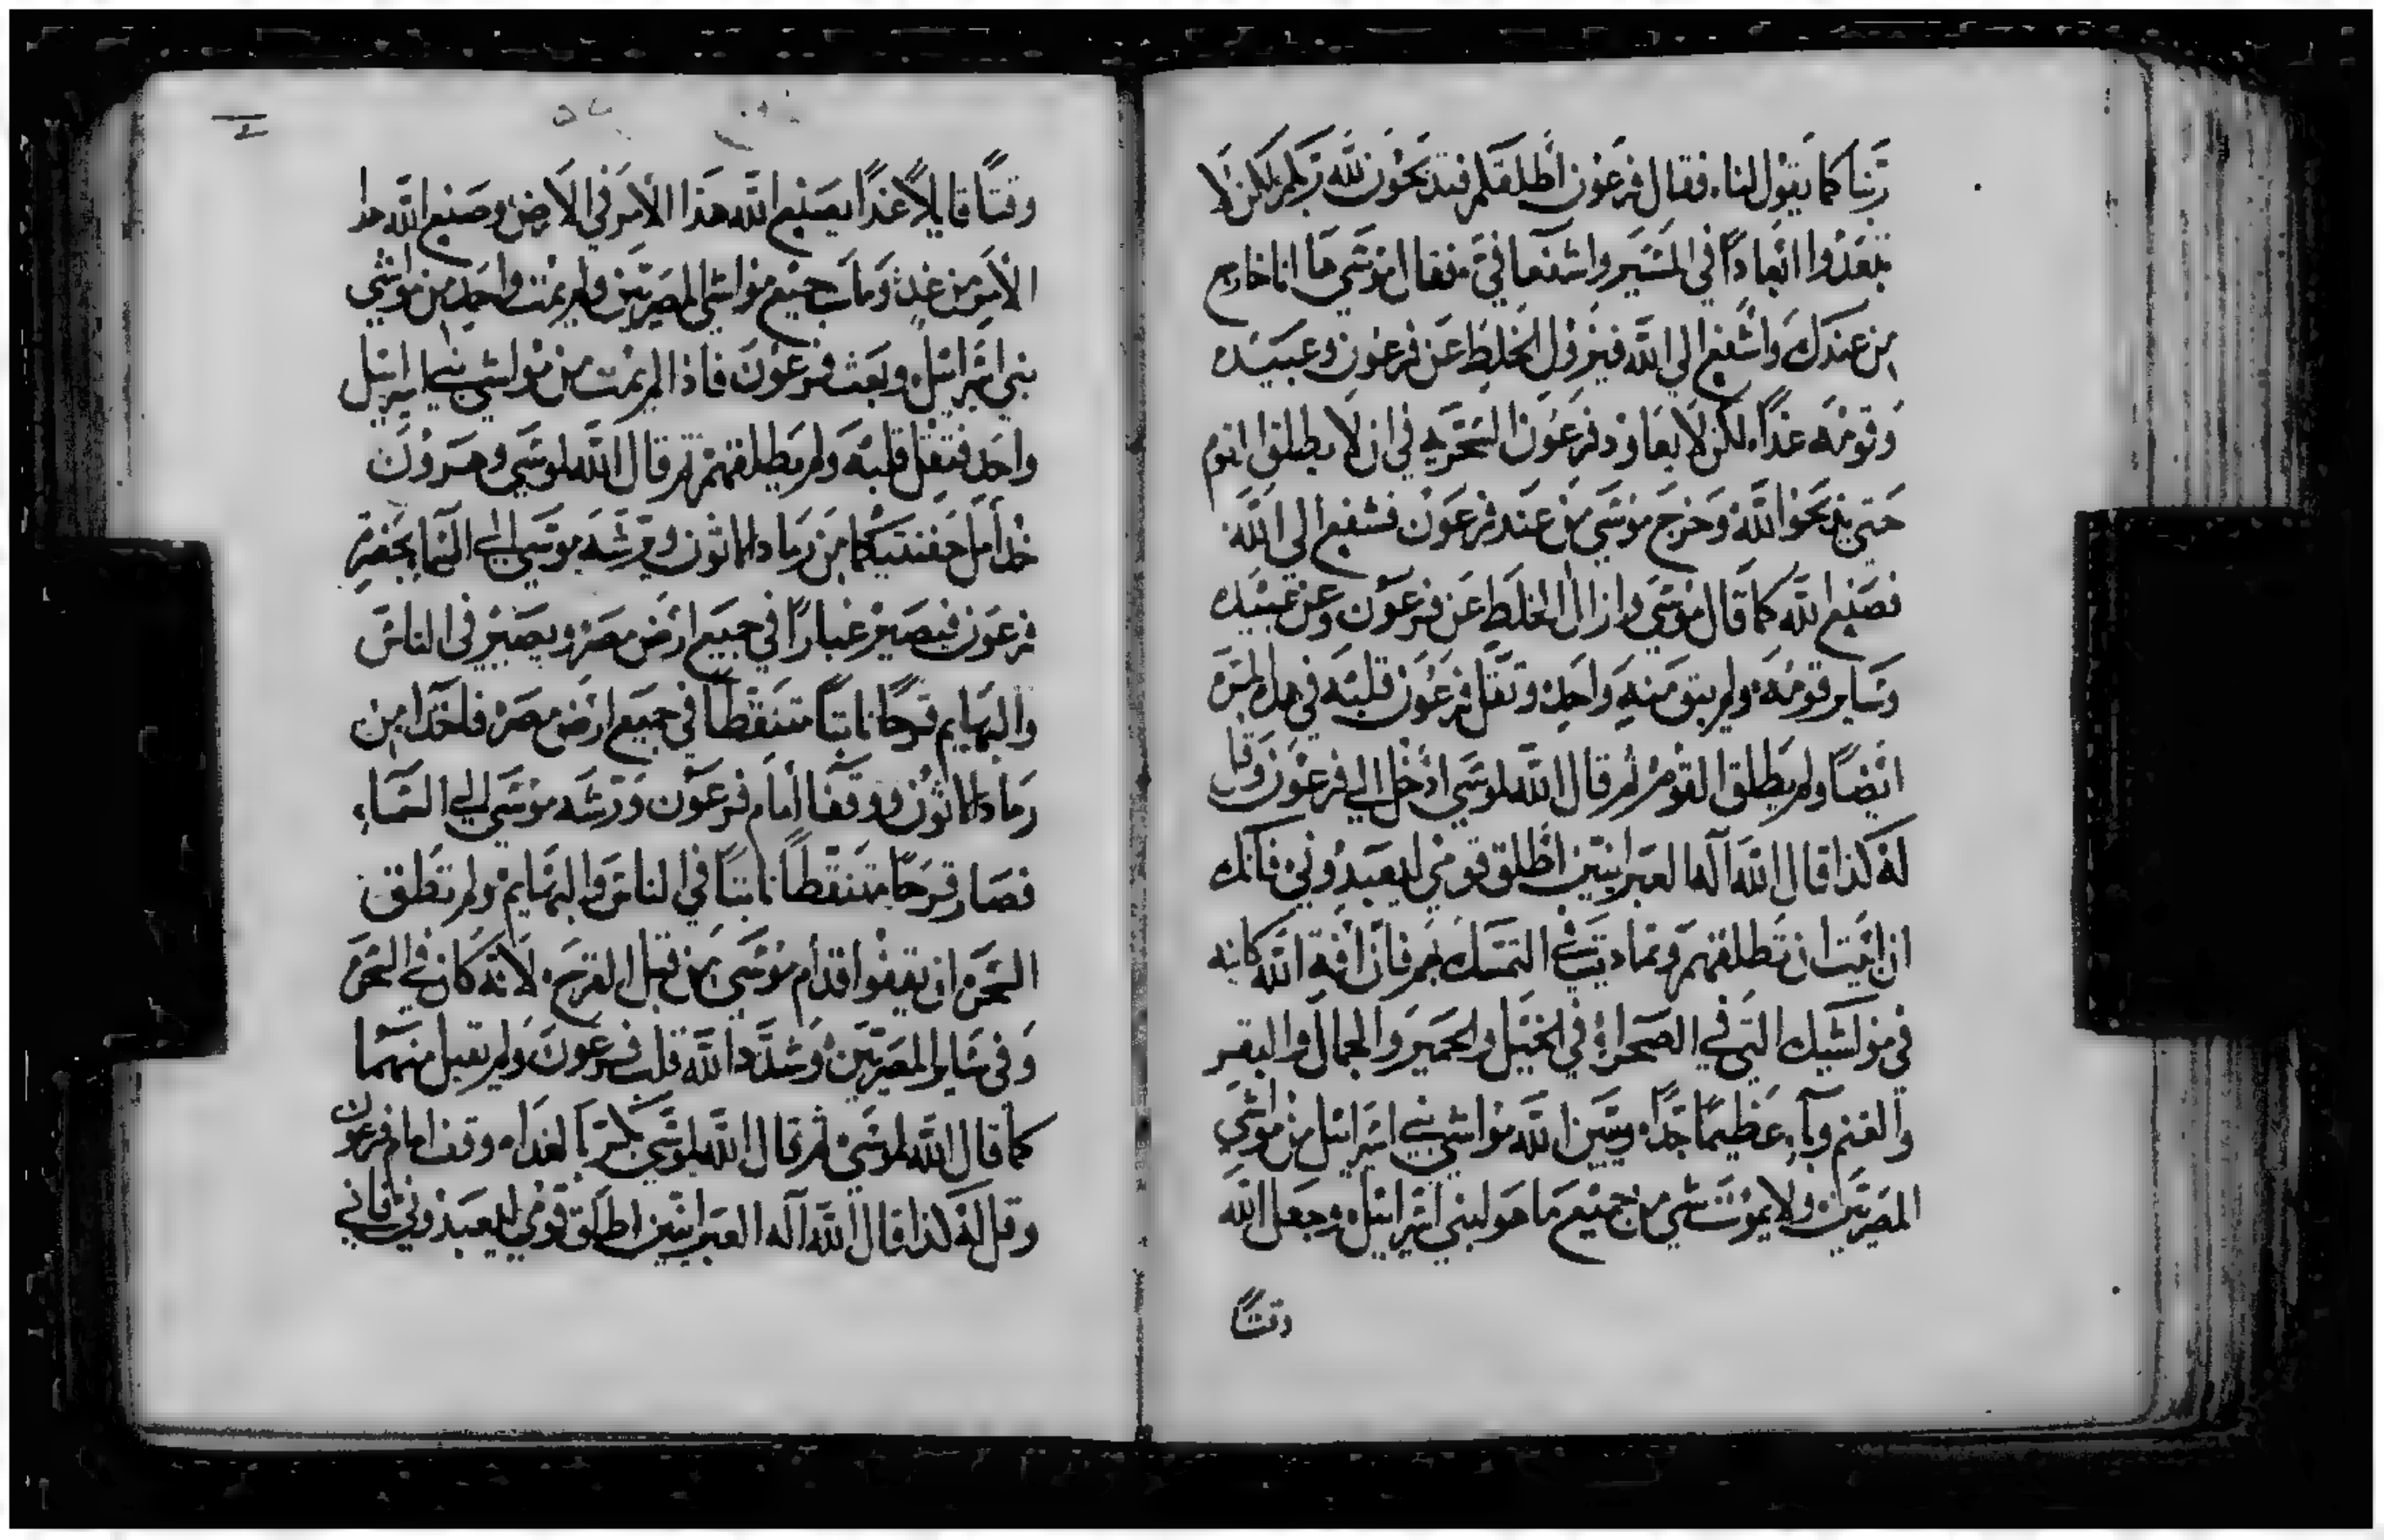 ربنا كما يقول لنا. فقال فرعون أطلقكم فتذبحون لله ربكم لكن لا
تبعدوا ابعادًا في المسير واشفعا فيّ. فقال موسى ها انا خارج
من عندك واشفع الى الله فيزول الخلط عن فرعون وعبيده
وقومه غدًا. لكن لا يعاود فرعون السخريه في ان لا يطلق القوم
حتى يذبحوا لله وخرج موسى من عند فرعون فشفع الى الله
فصنع الله كما قال موسى وازال الخلط عن فرعون وعن عبيده
وساير قومه ولم يبق منه واحد وثقل فرعون قلبه في هذه المره
ايضًا ولم يطلق القوم ثم قال الله لموسى ادخل الى فرعون وقل
له كذا قال الله اله العبرانيين اطلق قومي ليعبدوني فانك
ان ابيت ان تطلقهم وتماديت في التمسك بهم فان افة الله كاينه
في مواشيك التي في الصحراء في الخيل والحمير والجمال والبقر
والغنم وباء عظيمًا جدًا. ويبين الله مواشي بني اسرائيل من مواشي
المصريين ولا يموت شي من جميع ما هو لبني اسرائيل وجعل الله
وقتًا
وقتًا قايلاً غدًا يصنع الله هذا الامر في الارض وصنع الله هذا
الامر من غد ومات جميع مواشي المصريين ولم يمت واحد من مواشي
بني اسرائيل وبعث فرعون فاذا لم يمت من مواشي بني اسرائيل
واحد فثقل قلبه ولم يطلقهم ثم قال الله لموسى وهرون
خذا مل حفنتيكما من رماد الاتون ويرشه موسى الى السما بحضرة
فرعون فيصير غبارًا في جميع ارض مصر ويصير في الناس
والبهايم قرحًا نابتًا متنفطًا في جميع ارض مصر فاخذا من
رماد الاتون ووقفا أمام فرعون ورشه موسى الى السماء
فصار قرحًا متنفطًا نابتًا في الناس والبهايم ولم تطق
السحره ان يقفوا قدام موسى من قبل القرح. لانه كان في السحره
وفي ساير المصريين وشدد الله قلب فرعون ولم يقبل منهما
كما قال الله لموسى ثم قال الله لموسى بكر بالغداه وقف امام فرعون
وقل له كذا قال الله اله العبرانيين اطلق قومي ليعبدوني فاني